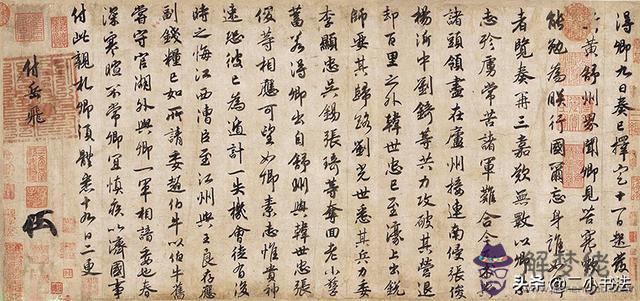 得卿九日奏已擇定十一日起發
往蘄黄舒州界聞卿見苦寒嗽
能勉為朕行國爾忘身誰如
者覽奏再三嘉歎無斁以卿
志殄虜常苦諸軍難合今
諸頭領盡在廬州接連南侵張俊
楊沂中劉錡等共力攻破其營退
却百里之外韓世忠已至濠上出銳
師要其歸路劉光世悉其兵力委
李顯忠吳錫張琦等奪回老小孳
畜若得卿出自舒州與韓世忠張
俊等相應可望如卿素志惟貴神
速恐彼已為遁計一失機會徒有後
時之悔江西漕臣至江州與王良存應
副錢糧已如所請委趙伯牛以伯牛舊
嘗守官湖外與卿一軍相諳委也春
深寒暄不常卿宜慎疾以濟國事
付此親札卿須體悉十九日二更
付岳飛
头条 @二小书法